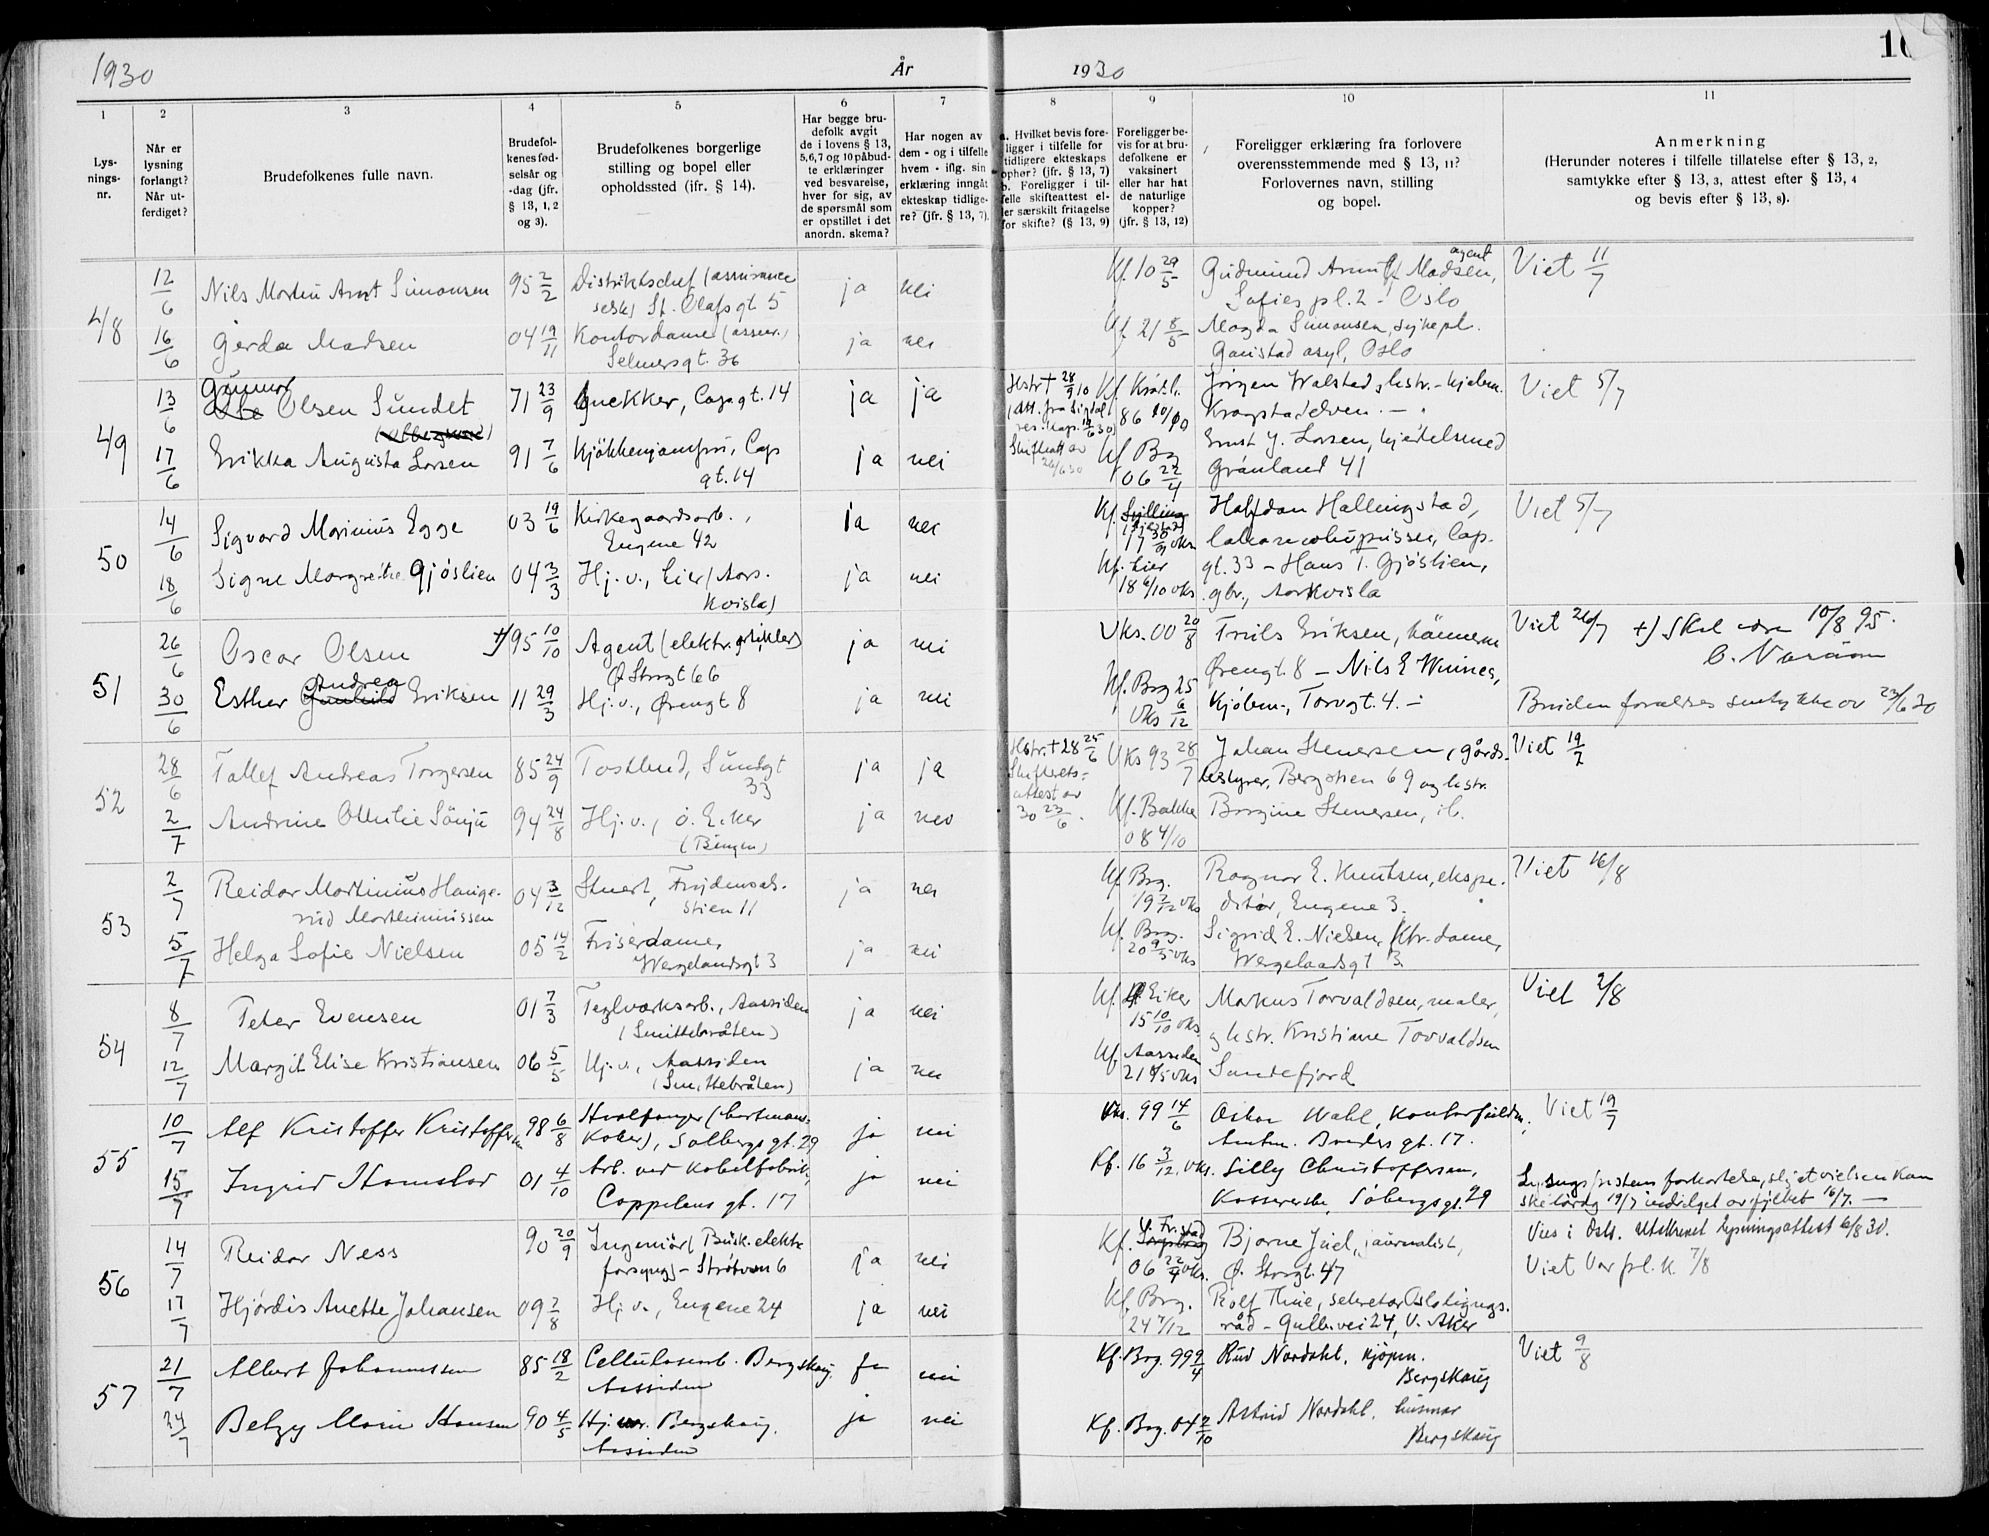 1930
År
1930
10
1
2
3
4
5
6
7
8
9
10
11
Lys-
nings-
nr.
Når er
lysning
forlangt?
Når ut-
ferdiget?
Brudefolkenes fulle navn.
Brudefol-
kenes fød-
selsår og
-dag (jfr.
§ 13, 1, 2
og 3).
Brudefolkenes borgerlige
stilling og bopel eller
opholdssted (ifr. § 14).
Har begge bru-
defolk avgit
de i lovens § 13,
5,6,7 og 10 påbud-
te erklæringer
ved besvarelse,
hver for sig, av
de spørsmål som
er opstillet i det
anordn. skema?
Har nogen av
dem - og i tilfelle
hvem - iflg. sin
erklæring inngåt
ekteskap tidlige-
re? (jfr. § 13, 7).
a. Hvilket bevis fore-
ligger i tilfelle for
tidligere ekteskaps
ophør? (jfr. § 13, 7)
b. Foreligger i til-
felle skifteattest el-
ler særskilt fritagelse
for skifte? (§ 13, 9)
Foreligger be-
vis for at bru-
defolkene er
vaksinert
eller har hat
de naturlige
kopper?
(jfr. § 13, 12)
Foreligger erklæring fra forlovere
overensstemmende med § 13, 11?
Forlovernes navn, stilling
og bopel.
Anmerkning
(Herunder noteres i tilfelle tillatelse efter § 13, 2,
samtykke efter § 13, 3, attest efter § 13, 4
og bevis efter § 13, 8).
48
12/6
Nils Morten Arnt Simonsen
95 2/2
Distriktschef (assurance
selsk) St. Olafs gt 5
ja
nei
Kf. 10 29/5
Gudmund Arnulf Madsen, agent
Sofies pl. 2 - Oslo
Viet 11/7
16/6
Gerda Madsen
04 19/11
Kontordame (assur.)
Selmersgt. 36
ja
nei
Kf. 21 8/5
Magda Simonsen, sykepl.
Gaustad asyl, Oslo
49
13/6
Gunnar
Olsen Sundet
71 23/9
Snekker, Capgt. 14
ja
ja
Hstr † 28/9 10
Kf.
86 10/10
Jørgen Walstad, hstr. - kjøbm.
Krogstadelven. -
Viet 5/7
17/6
Erikka Augusta Larsen
91 7/6
Kjøkkenjomfru, Cap
gt. 14
ja
nei
Skifteatt av
26/6 30
Kf Brg
06 22/4
Ernst J. Larsen, kjedelsmed
Grønland 41
50
14/6
Sigvard Marinius Egge
03 19/6
Kirkegaardsarb.,
Engene 42
ja
nei
Kf.
17 30/9 vks
Halfdan Hallingstad,
Cap-
Viet 5/7
18/6
Signe Margrethe Gjøslien
04 3/3
Hj. v., Lier (Aors-
kvisla)
ja
nei
Kf. Lier
18 6/10 vks
gt. 33 - Hans T. Gjøslien,
gbr., Aorkvisla
51
26/6
Oscar Olsen
+) 95 10/10
Agent (elektr. artikler)
Ø Storgt 66
ja
nei
Vks. 00 20/8
Truls Eriksen,
Ørengt. 8 - Nils E Winnes,
Viet 26/7 +) Skal være 10/8 95.
30/6
Esther Gunhild Andrea Eriksen
11 29/3
Hj. v., Ørengt 8
ja
nei
Kf. Brg 25
Vks 6/12
Kjøbm., Torvgt. 4. -
Brudens forældres samtykke av 23/6 30
52
28/6
Tallef Andreas Torgersen
85 24/9
Postbud, Sundgt
33
ja
ja
Hstr. † 28 25/6
Skifterets-
attest av
30 23/6.
Vks 93 28/7
Johan Stenersen, gårds-
bestyrer, Bergstien 69 og hstr.
Viet 19/7
2/7
Andrine Ottilie Sønju
94 24/8
Hj. v., ø. Eiker
(Bingen)
ja
nei
Kf. Bakke
08 4/10
Borgine Stenersen, ib.
53
2/7
Reidar Martinius Hauge-
rud Marthiniussen
04 3/12
Stuert, Frydensals-
stien 11
ja
nei
Kf Brg.
19 2/12 vks
Ragnar E. Knutsen, ekspe-
ditør, Engene 3.
Viet 16/8
5/7
Helga Sofie Nielsen
05 14/2
Friserdame,
Wergelandsgt 3
ja
nei
Kf. Brg.
20 9/5 vks
Sigrid E. Nielsen, Ktr. dame,
Wergelandsgt 3.
54
8/7
Peter Evensen
01 7/3
Teglverksarb., Aassiden
(Smittebråten)
ja
nei
Kf. Ø Eiker
15 10/10 vks
Markus Torvaldsen, maler,
Viet 2/8
12/7
Margit Elise Kristiansen
06 5/5
Hj. v., Aassiden
(Smittebråten)
ja
nei
Kf Aassiden
21 8/5 vks
og hstr. Kristiane Torvaldsen
Sandefjord
55
10/7
Alf Kristoffer Kristoffersen
98 6/8
Hvalfanger
Solbergsgt. 29
ja
nei
Vks. 99 14/6
Oskar Wahl, kontorfuldm.,
gt. 17.
Viet 19/7
15/7
Ingrid Hamsbor
01 4/10
Arb. ved Kabelfabrik,
Coppelens gt. 17
ja
nei
Kf. 16 3/12, vks.
Lilly Christoffersen,
Kassererske, Sobergsgt. 29
Lysningsfristens forkortelse, slik at vielsen kan
ske lørdag 19/7 indvilget av fylket 16/7. -
56
14/7
Reidar Ness
90 20/9
Ingeniør (Busk. elektr.
forsyng) - Strømsø 6
ja
nei
Kf. Fr.stad
06 22/4 vks.
Bjarne Juel, journalist,
Ø. Storgt. 47
Vies i Oslo. Utskrevet lysningsattest 6/8 30.
Viet Vor frl. k. 7/8
17/7
Hjørdis Anette Johansen
09 2/8
Hj. v., Engene 24
ja
nei
Kf. Brg.
24 7/12
Rolf Thue, sekretær Oslo lignings-
råd - Gullh.vei 24, V. Aker
57
21/7
Albert Johannessen
85 18/2
Cellulosearb. Bergskaug,
Aassiden
ja
nei
Kf. Brg. 99 9/4
Rud Nordahl, kjøpm.
Bergskaug
Viet 9/8
24/7
Betzy Marie Hansen
90 4/5
Hj. v. Bergskaug,
Aassiden
ja
nei
Kf. Brg. 04 2/10
Astrid Nordahl, husmor
Bergskaug